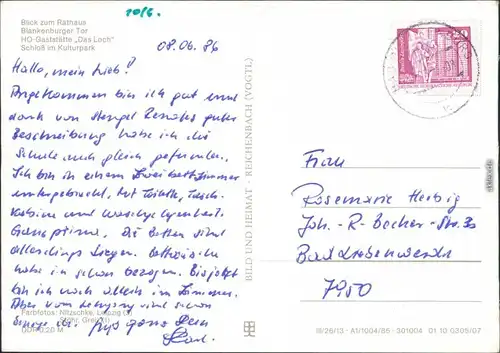 10/6.
Blick zum Rathaus
Blankenburger Tor
HO-Gaststätte „Das Loch“
Schloß im Kulturpark
08.06.86
Hallo, mein Lieb!
Angekommen bin ich gut und
dank von Renates guter
Beschreibung habe ich die
Schule auch gleich gefunden.
Ich bin in einem Zweibettzimmer
untergebracht, mit Toilette, Dusch-
kabine und
Ganz prima. Die Betten sind
allerdings Liegen.
habe ich schon bezogen. Bis jetzt
bin ich noch allein im Zimmer.
Aber vom Lehrgang sind schon
einige da. ganz Dein
Farbfotos: Nitzschke, Leipzig (3)
Stöhr, Greiz (1)
DDR 0,20 M
BILD UND HEIMAT · REICHENBACH (VOGTL)
Frau
Rosemarie Herbig
Joh.-R-Becher-Str.
Bad Liebenwerda
7950
III/26/13 A1/1004/85 301004 01 10 0305/07